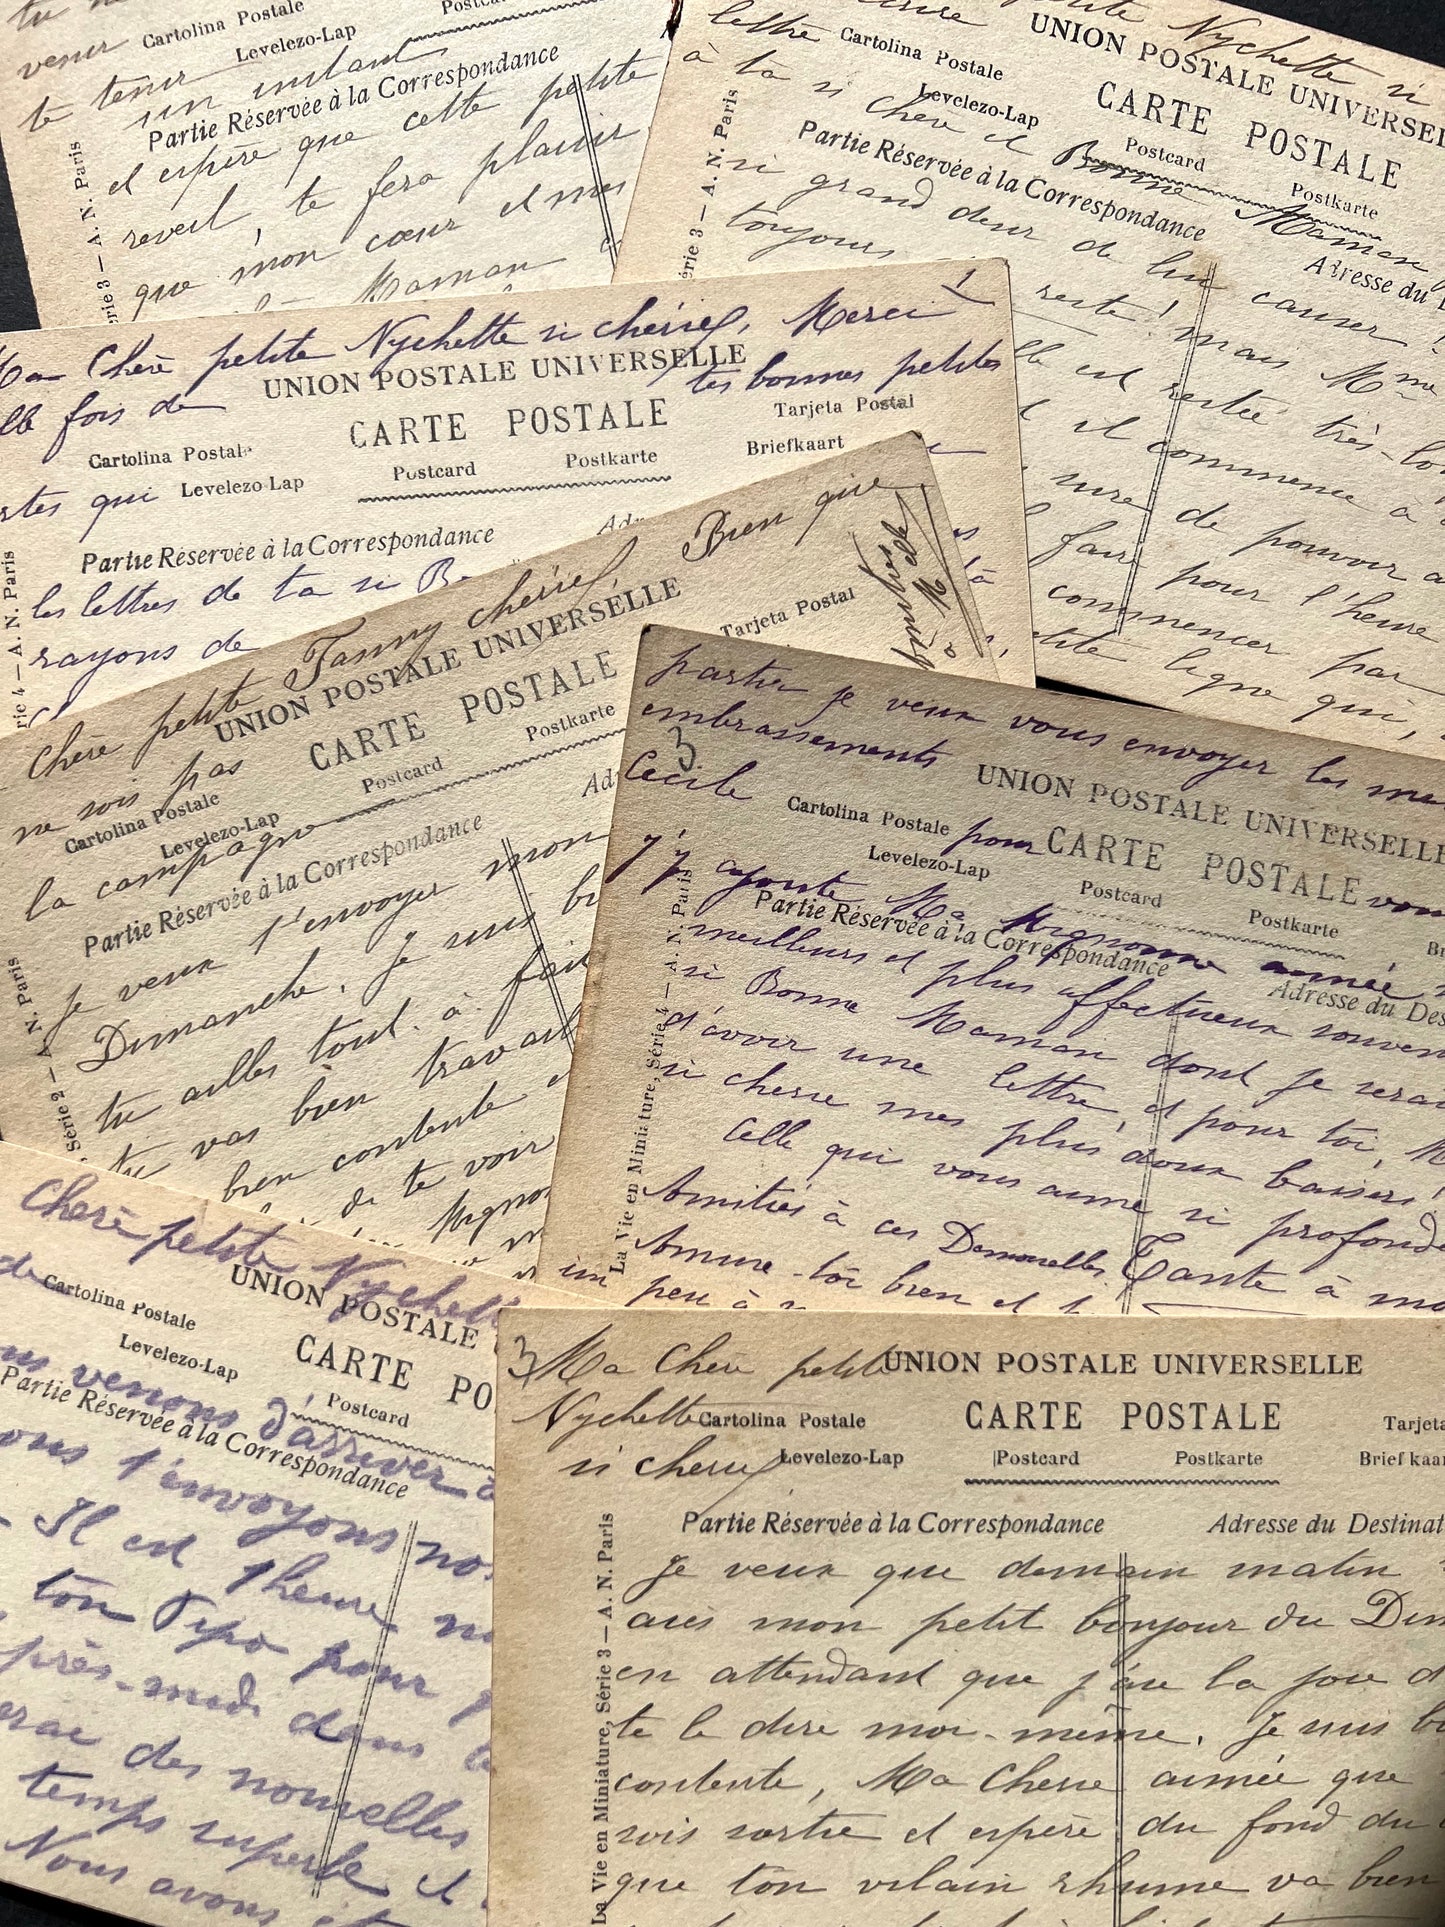 venir
Cartolina Postale
Levelezo-Lap
te tenir un instant
Partie Réservée à la Correspondance
et espère que cette petite
reveil, te fera plaisir
que mon cœur et mes
Maman
Série 3 — A. N. Paris
petite Nychette si
UNION POSTALE UNIVERSEL
lettre
Cartolina Postale
CARTE POSTALE
à ta si chère et Bonne Maman
Levelezo-Lap
Postcard
Postkarte
Partie Réservée à la Correspondance
Adresse du
si grand désir de lui causer !
toujours reste ! mais Mme
elle est restée très-lo
et il commence à
sure de pouvoir a
faire pour l'heure
commencer par
petite ligne qui,
érie 3 — A. N. Paris
1
Ma Chère petite Nychette si chérie, Merci
UNION POSTALE UNIVERSELLE
lle fois de tes bonnes petites
CARTE POSTALE
Tarjeta Postal
Cartolina Postale
Postcard
Postkarte
Briefkaart
rtes qui
Levelezo-Lap
Partie Réservée à la Correspondance
Adr
les lettres de ta si Bo
rayons de
rie 4 — A. N. Paris
Chère petite Fanny chérie, Bien que
UNION POSTALE UNIVERSELLE
ne sois pas
CARTE POSTALE
Tarjeta Postal
Cartolina Postale
Postcard
Postkarte
Levelezo-Lap
la campagne
Ad
Partie Réservée à la Correspondance
je veux t'envoyer mon
Dimanche. Je suis bi
tu ailles tout à fait
tu vas bien travail
bien contente
de te voir
Mignon
à Melle
Série 2 — A. N. Paris
partir je veux vous envoyer les me
embrassements
3
UNION POSTALE UNIVERSELLE
Cécile
Cartolina Postale
pour
CARTE POSTALE
vou
Levelezo-Lap
Postcard
Postkarte
Br
j'y ajoute Ma Mignonne aimée,
Partie Réservée à la Correspondance
Adresse du Des
meilleurs et plus affectueux souven
si Bonne Maman dont je serai
d'avoir une lettre, et pour toi, M
si cherie mes plus doux baisers !
Celle qui vous aime si profond
Amitiés à ces Demoiselles Tante à mo
Amuse-toi bien et
un peu à
La Vie en Miniature, Série 4 — A. N. Paris
Chère petite Nychett
UNION POSTALE
de
Cartolina Postale
CARTE PO
Levelezo-Lap
Postcard
us venons d'arriver à
Partie Réservée à la Correspondance
ous t'envoyons no
Il est 1 heure
ton Typo pour
près-midi dans
des nouvelles
temps superbe et
Nous avons
3
Ma Chère petite
UNION POSTALE UNIVERSELLE
Nychette
Cartolina Postale
CARTE POSTALE
Tarjeta
si cherie,
Levelezo-Lap
Postcard
Postkarte
Briefkaar
Partie Réservée à la Correspondance
Adresse du Destinat
Je veux que demain matin
aies mon petit bonjour du Dim
en attendant que j'aie la joie d
te le dire moi-même. Je suis bi
contente, Ma Cherie aimée que
sois sortie et espère du fond du
que ton vilain rhume va bien
La Vie en Miniature, Série 3 — A. N. Paris